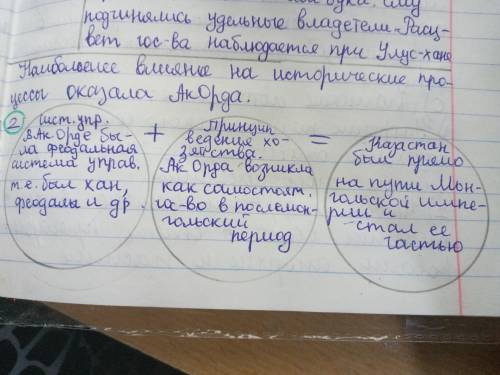 подчинялись удельные владетели. Расц-
вет гос-ва наблюдается при Улус-хане
Наибольшее влияние на исторические про-
цессы оказала АкОрда.
2 сист. упр.
В Ак Орде бы-
ла феодальная
система управ.
т.е. был хан,
феодалы и др.
+
Принцип
ведения хо-
зяйства.
Ак Орда возникла
как самостоят.
гос-во в послемон-
гольский
период
=
Казастан
был прямо
на пути Мон-
гольской импе-
рии и
стал ее
частью